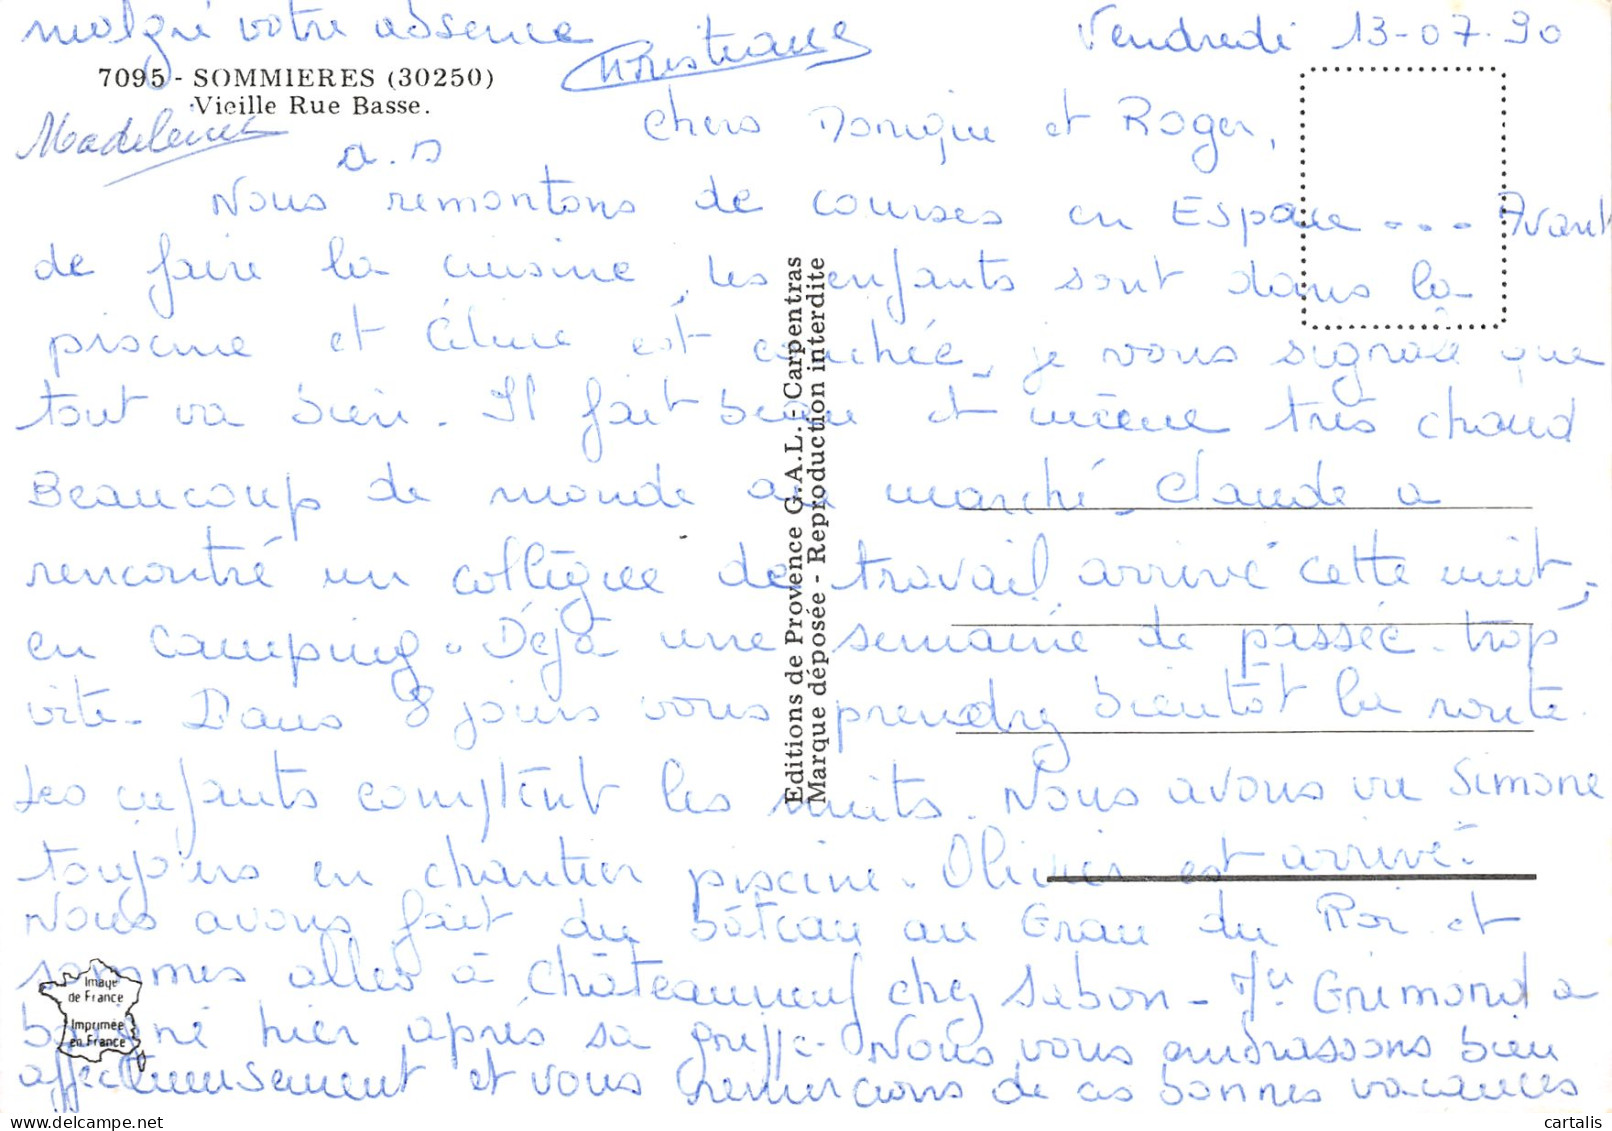 malgré votre absence
Christiane
Vendredi 13-07-90
7095 - SOMMIERES (30250)
Vieille Rue Basse.
Madeleine
Chers Monique et Roger,
Nous remontons de courses en Espace --- Avant
de faire la cuisine, les enfants sont dans la
piscine et Céline est couchée, je vous signale que
tout va bien. Il fait beau et même très chaud
Beaucoup de monde au marché. Claude a
rencontré un collègue de travail arrivé cette nuit,
en camping. Déjà une semaine de passée. trop
vite. Dans 8 jours vous prendrez bientôt la route
Les enfants comptent les nuits. Nous avons vu Simone
toujours en chantier piscine. Olivier est arrivé.
Nous avons fait du bâteau au Grau du Roi et
sommes allés à Châteauneuf chez Sabon - Mr Grimond a
hier après sa griffe. Nous vous embrassons bien
affectueusement et vous remercions de ces bonnes vacances
Editions de Provence G.A.L. - Carpentras
Marque déposée - Reproduction interdite
Image
de France
Imprimée
en France
cartalis